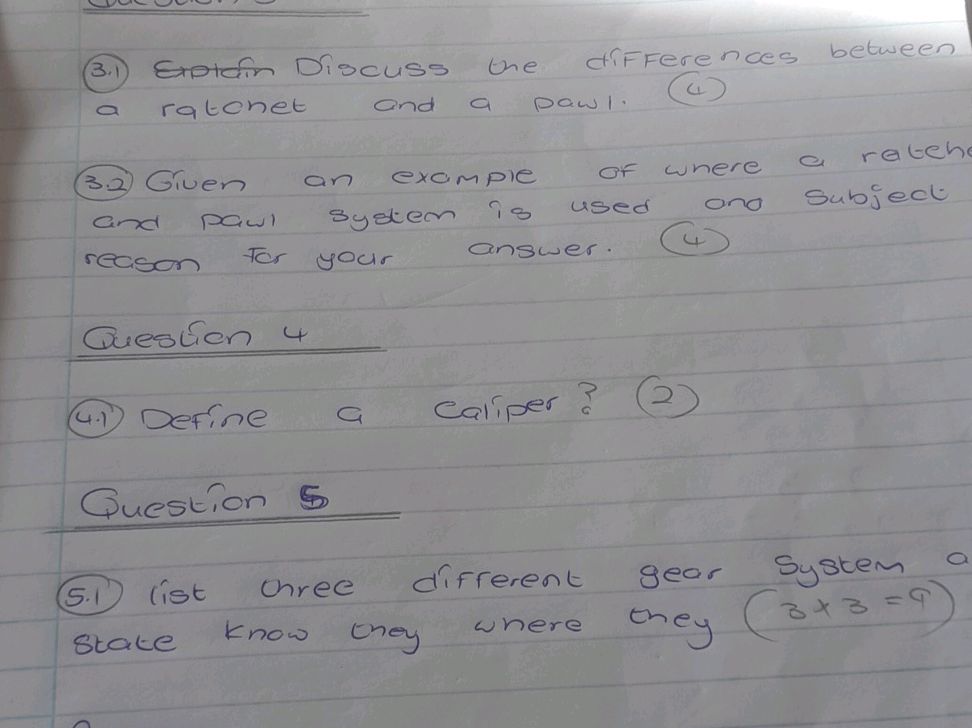 3.1 Discuss the differences between
a ratchet and a pawl. (4)
3.2 Given an example of where a
and pawl system is used and Subject
reason for your answer. (4)
Question 4
4.1 Define a caliper? (2)
Question 5
5.1 list three different gear System
State know they where they (3x3=9)